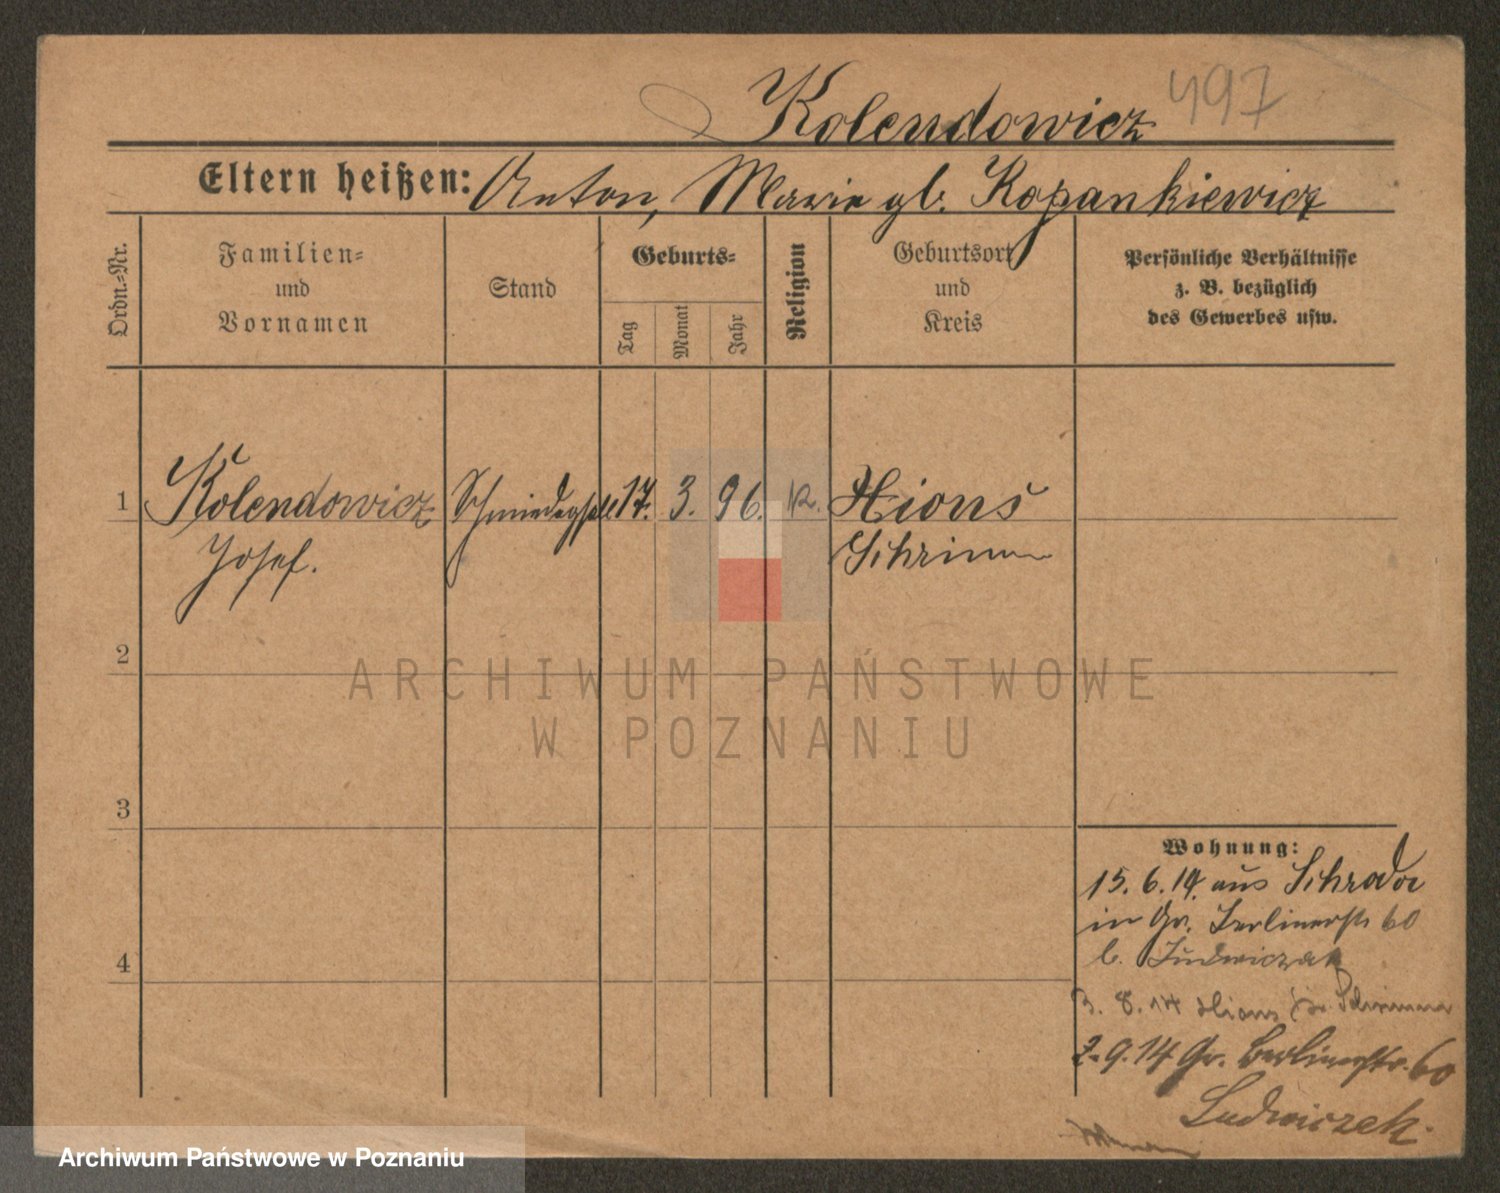 Kolendowicz 497
Eltern heißen: Anton, Marie gb. Kopankiewicz
Ordn.-Nr.
Familien-
und
Vornamen
Stand
Geburts-
Tag
Monat
Jahr
Religion
Geburtsort
und
Kreis
Persönliche Verhältnisse
z. B. bezüglich
des Gewerbes usw.
1 Kolendowicz Schmiedegeselle 17. 3. 96. K. Xions
Josef. Schrimm
2
ARCHIWUM PAŃSTWOWE
W POZNANIU
3
Wohnung:
15. 6. 14. aus Schroda
in Gr. Berlinerstr 60
b. Ludwiczak
4
3. 8. 14 Xions Kr. Schrimm
2. 9. 14 Gr. Berlinerstr. 60
Ludwiczak.
Archiwum Państwowe w Poznaniu